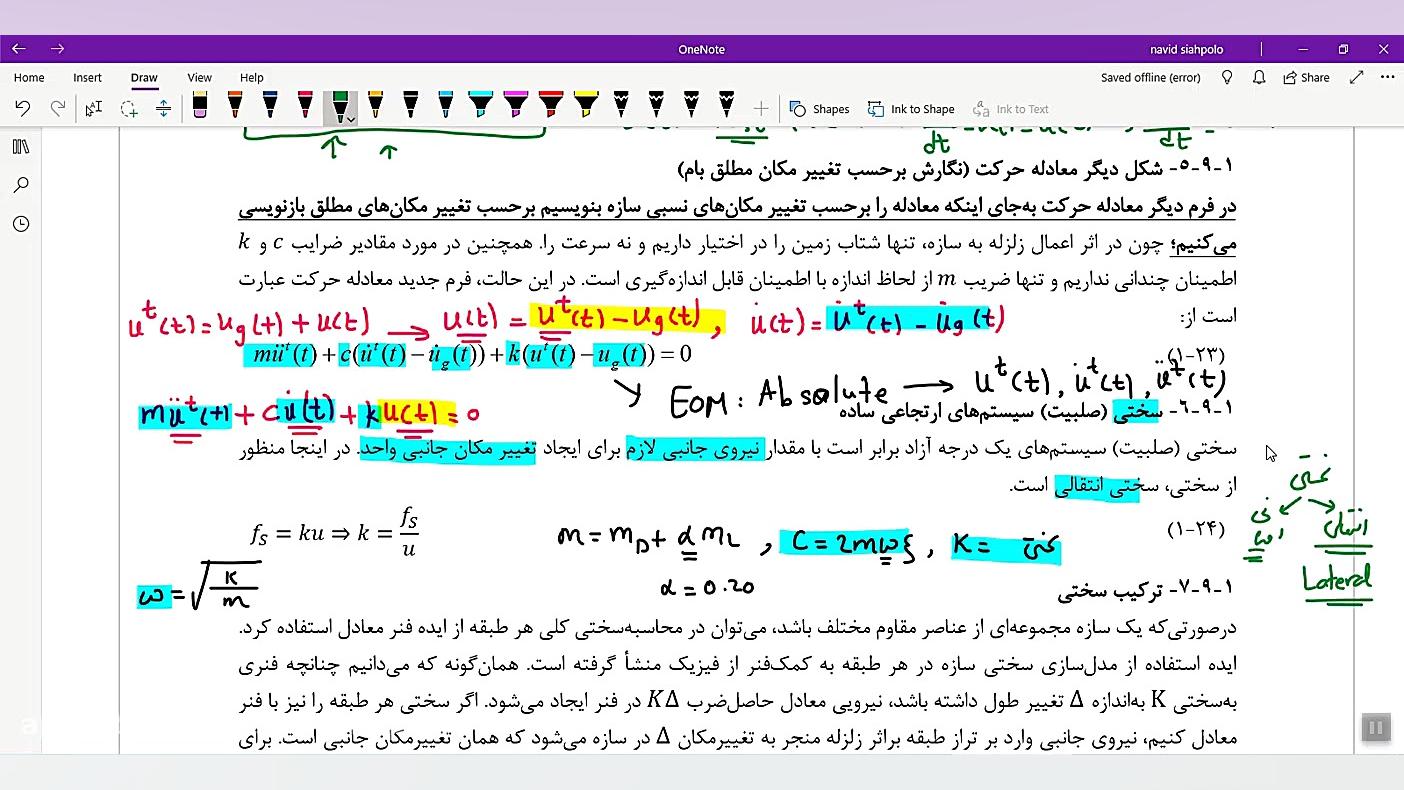 OneNote
navid siahpolo
Home Insert Draw View Help
Saved offline (error) Share
Shapes Ink to Shape Ink to Text
dt dt
۱-۹-۵- شکل دیگر معادله حرکت (نگارش برحسب تغییر مکان مطلق بام)
در فرم دیگر معادله حرکت به‌جای اینکه معادله را برحسب تغییر مکان‌های نسبی سازه بنویسیم برحسب تغییر مکان‌های مطلق بازنویسی
می‌کنیم؛ چون در اثر اعمال زلزله به سازه، تنها شتاب زمین را در اختیار داریم و نه سرعت را. همچنین در مورد مقادیر ضرایب c و k
اطمینان چندانی نداریم و تنها ضریب m از لحاظ اندازه با اطمینان قابل اندازه‌گیری است. در این حالت، فرم جدید معادله حرکت عبارت
است از:
uᵗ(t) = ug(t) + u(t) → u(t) = uᵗ(t) − ug(t), u̇(t) = u̇ᵗ(t) − u̇g(t)
müᵗ(t) + c(u̇ᵗ(t) − u̇g(t)) + k(uᵗ(t) − ug(t)) = 0 (۱-۲۳)
EOM: Absolute → uᵗ(t), u̇ᵗ(t), üᵗ(t)
müᵗ(t) + cu̇(t) + ku(t) = 0
۱-۹-۶- سختی (صلبیت) سیستم‌های ارتجاعی ساده
سختی (صلبیت) سیستم‌های یک درجه آزاد برابر است با مقدار نیروی جانبی لازم برای ایجاد تغییر مکان جانبی واحد. در اینجا منظور
از سختی، سختی انتقالی است.
سختی
انتقالی
Lateral
fS = ku ⇒ k = fS/u (۱-۲۴)
m = mD + α mL , C = 2mωξ , K = سختی
α = 0.20
ω = √(K/m)
۱-۹-۷- ترکیب سختی
درصورتی‌که یک سازه مجموعه‌ای از عناصر مقاوم مختلف باشد، می‌توان در محاسبه‌سختی کلی هر طبقه از ایده فنر معادل استفاده کرد.
ایده استفاده از مدل‌سازی سختی سازه در هر طبقه به کمک‌فنر از فیزیک منشأ گرفته است. همان‌گونه که می‌دانیم چنانچه فنری
به‌سختی K به‌اندازه Δ تغییر طول داشته باشد، نیرویی معادل حاصل‌ضرب KΔ در فنر ایجاد می‌شود. اگر سختی هر طبقه را نیز با فنر
معادل کنیم، نیروی جانبی وارد بر تراز طبقه براثر زلزله منجر به تغییرمکان Δ در سازه می‌شود که همان تغییرمکان جانبی است. برای